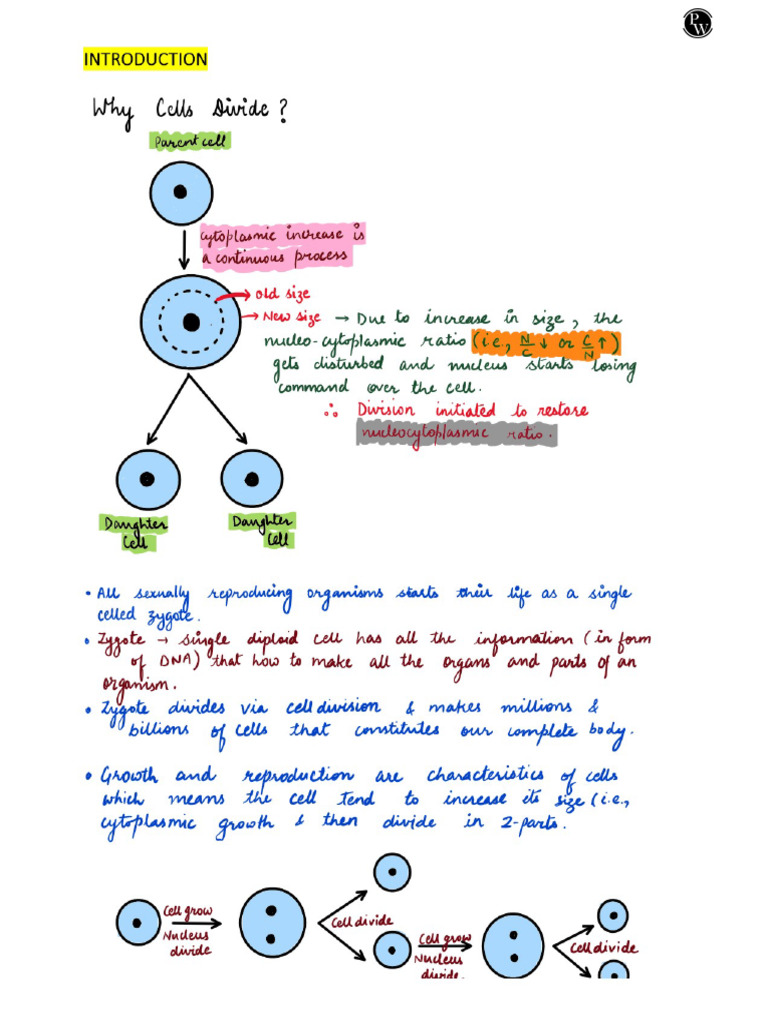 PW
INTRODUCTION
Why Cells Divide?
Parent cell
cytoplasmic increase is
a continuous process
old size
New size → Due to increase in size, the
nucleo-cytoplasmic ratio (i.e., N/C ↓ or C/N ↑)
gets disturbed and nucleus starts losing
command over the cell.
∴ Division initiated to restore
nucleocytoplasmic ratio.
Daughter
Cell
Daughter
Cell
• All sexually reproducing organisms starts their life as a single
celled zygote.
• Zygote → single diploid cell has all the information (in form
of DNA) that how to make all the organs and parts of an
organism.
• Zygote divides via cell division & makes millions &
billions of cells that constitutes our complete body.
• Growth and reproduction are characteristics of cells
which means the cell tend to increase its size (i.e.,
cytoplasmic growth & then divide in 2-parts.
Cell grow
Nucleus
divide
Cell divide
Cell grow
Nucleus
divide.
Cell divide